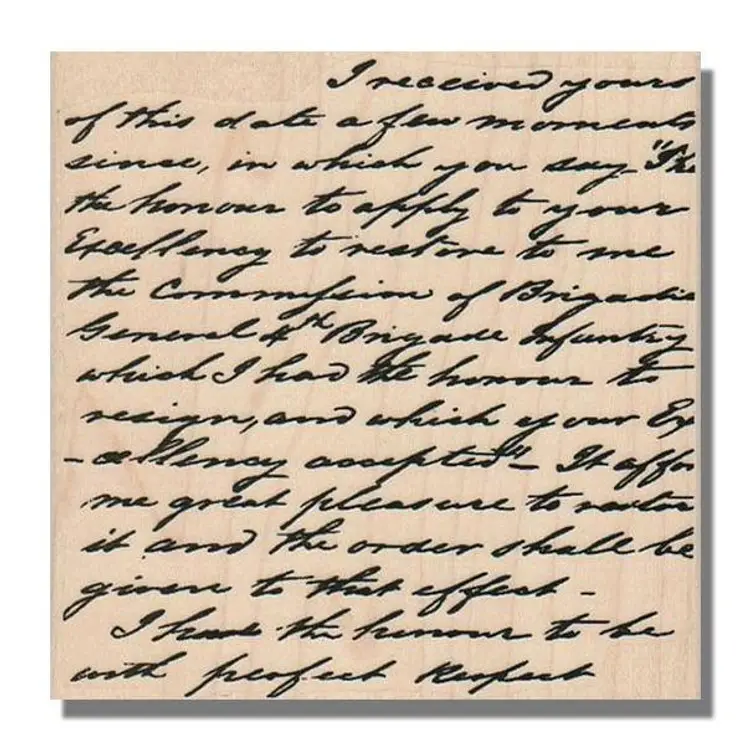 I received yours
of this date a few moments
since, in which you say "I ha
the honour to apply to your
Excellency to restore to me
the Commission of Brigadie
General 4th Brigade Infantry
which I had the honour to
resign, and which your Ex
-cellency accepted" - It affor
me great pleasure to restore
it and the order shall be
given to that effect -
I have the honour to be
with perfect Respect